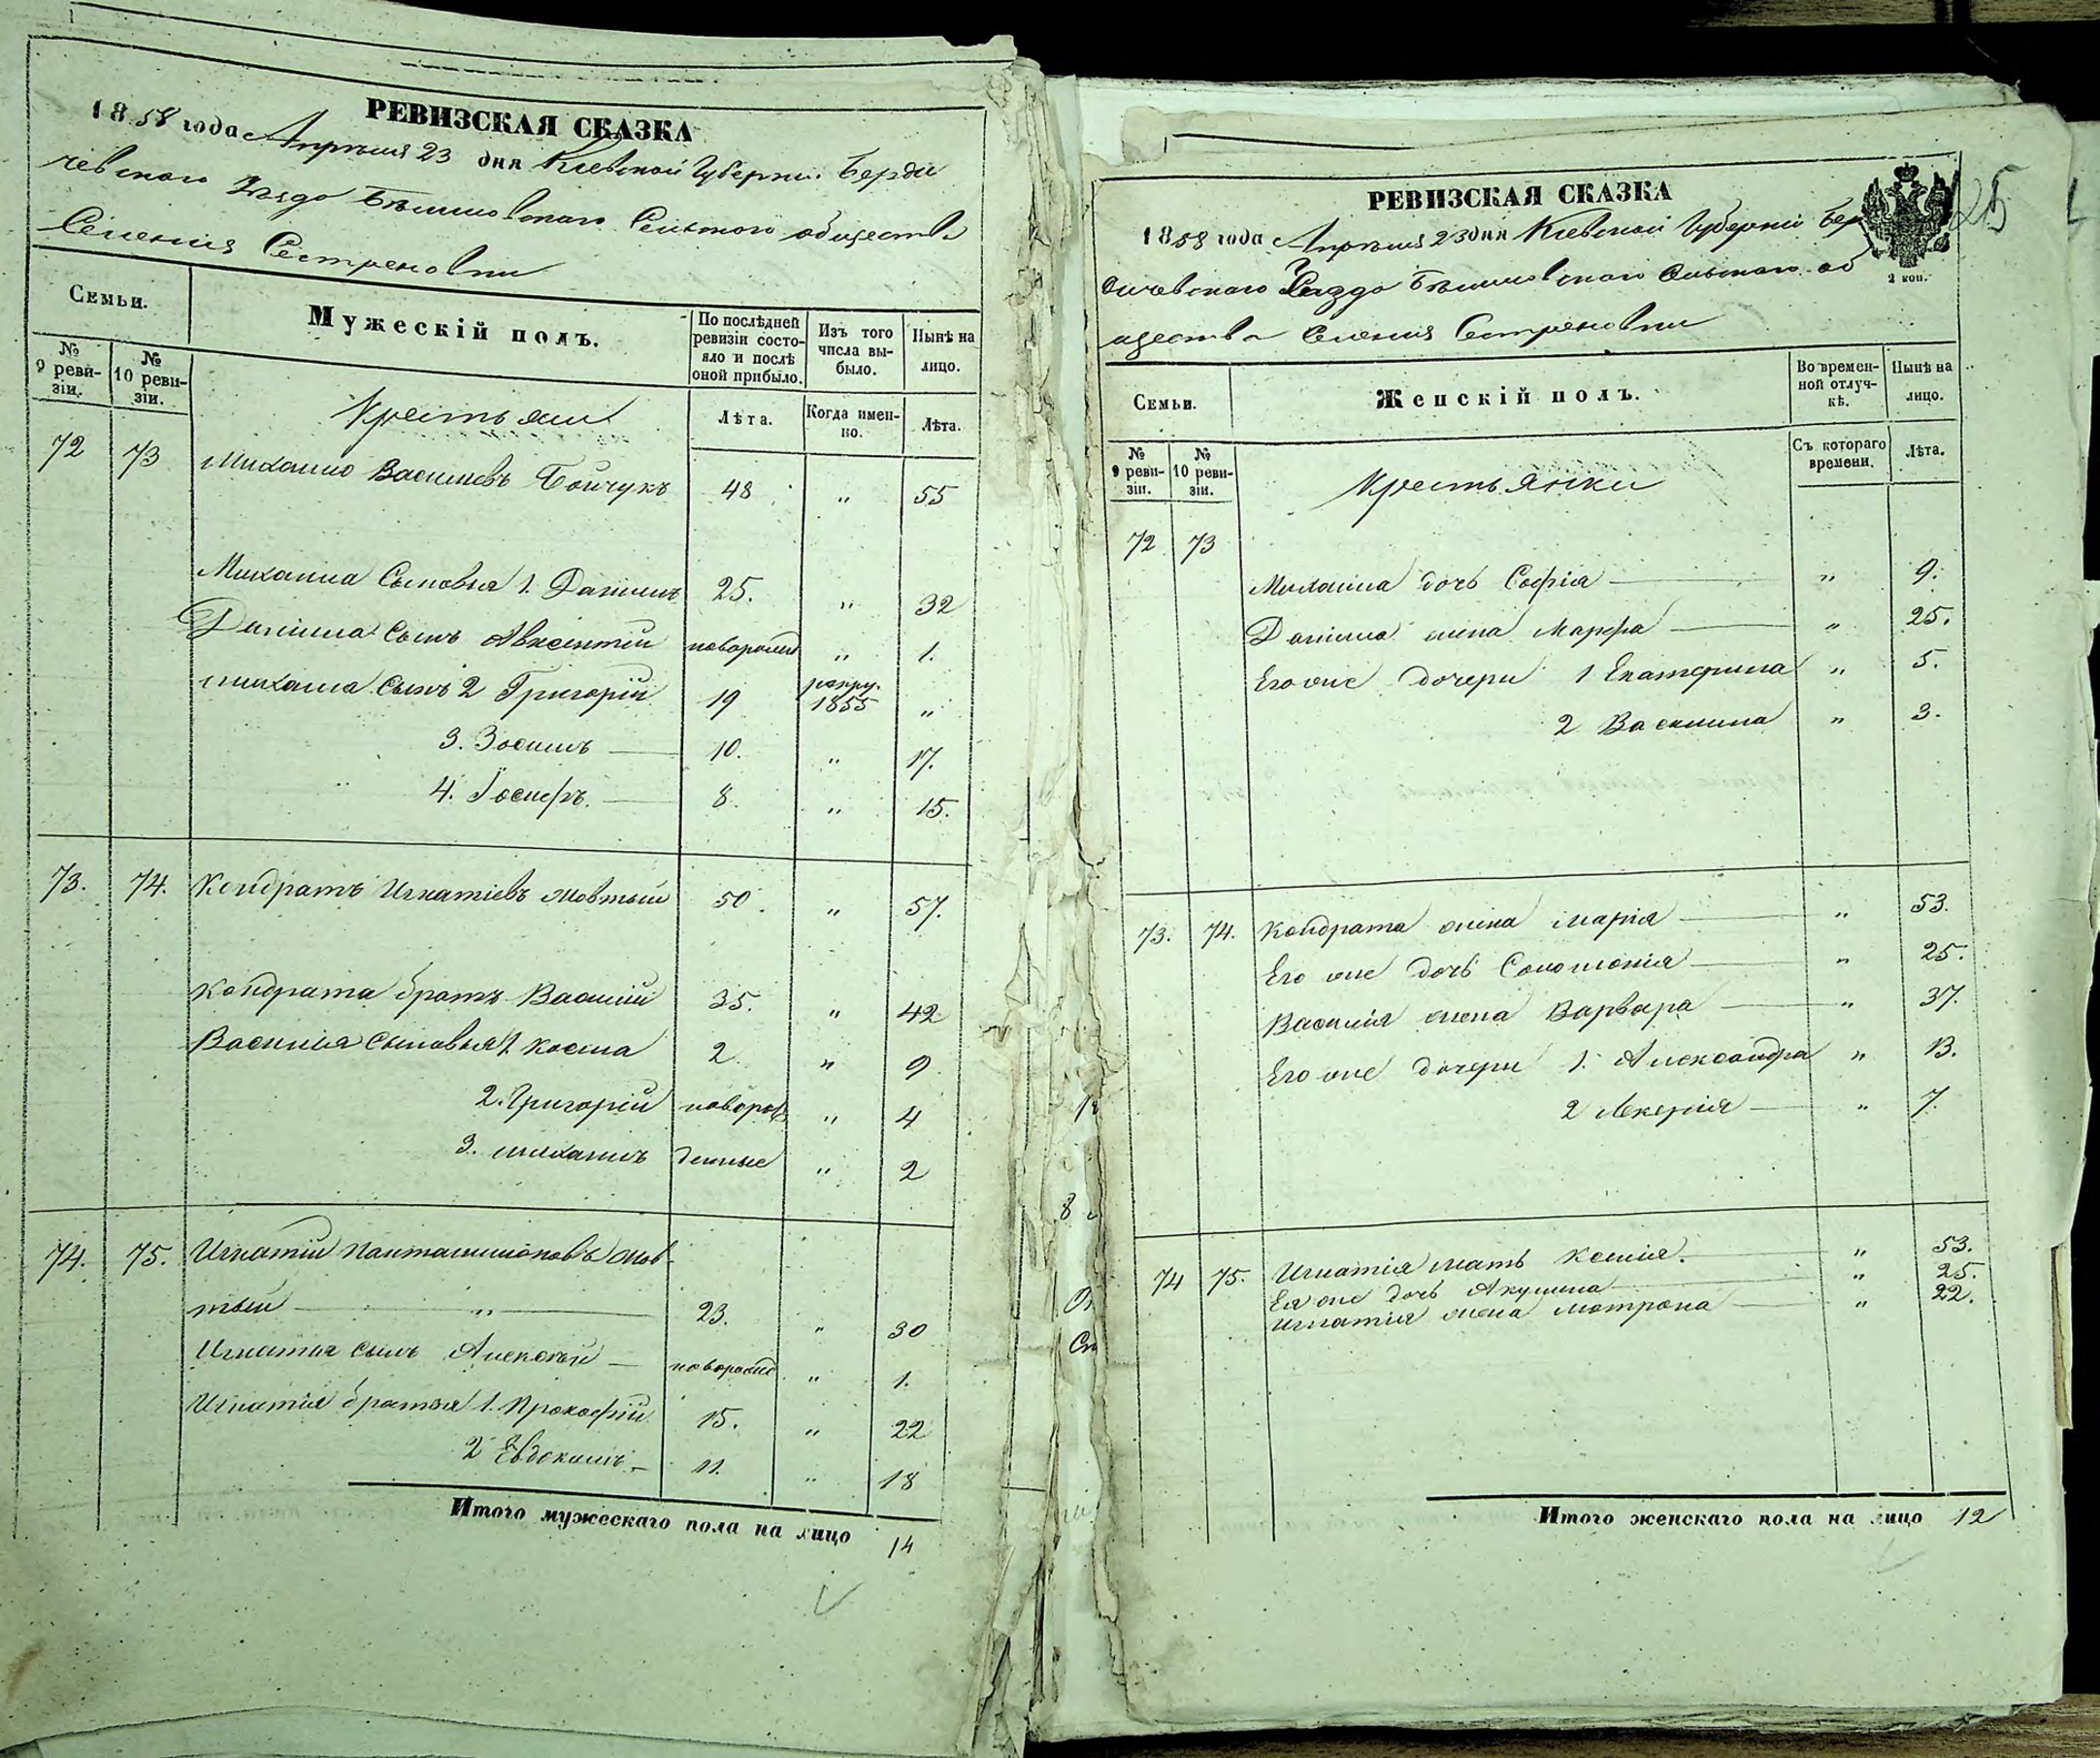 РЕВИЗСКАЯ СКАЗКА
1858 года Апрѣля 23 дня Кіевской Губерніи Берди
чевского Уѣзда Бѣлиловского Сельского общества
Селенія Сестреновки
Семьи.
Мужескій полъ.
По послѣдней ревизіи состояло и послѣ оной прибыло.
Изъ того числа выбыло.
Нынѣ на лицо.
№ 9 ревизіи.
№ 10 ревизіи.
Крестьяне
Лѣта.
Когда именно.
Лѣта.
72 73 Михаило Васильевъ Бойчукъ 48 " 55
Михаила Сыновья 1. Данило 25. " 32
Данила Сынъ Авксентій новорожд " 1.
Михаила Сынъ 2 Григорій 19 рекру. 1855 "
3. Зосимъ 10. " 17.
4. Іосифъ. 8. " 15.
73. 74. Кондратъ Игнатіевъ Мовтый 50. " 57.
Кондрата братъ Василій 35. " 42
Василія Сыновья 1. Косма 2. " 9
2. Григорій новорож " 4
3. Михаилъ денные " 2
74. 75. Игнатій Панталимоновъ Мов
тый " 23. " 30
Игнатія сынъ Алексѣй новорожд " 1.
Игнатія братья 1. Прокофій 15. " 22
2 Евдокимъ 11. " 18
Итого мужескаго пола на лицо 14
РЕВИЗСКАЯ СКАЗКА
25
1858 года Апрѣля 23 дня Кіевской Губерніи Бер
дичевского Уѣзда Бѣлиловского Сельского об
2 коп.
щества Селенія Сестреновки
Семьи.
Женскій полъ.
Во временной отлучкѣ.
Нынѣ на лицо.
№ 9 ревизіи.
№ 10 ревизіи.
Крестьянки
Съ котораго времени.
Лѣта.
72 73
Михаила дочь Софія " 9.
Данила жена Марфа " 25.
Его же дочери 1 Екатерина " 5.
2 Василина " 3.
73. 74. Кондрата жена Марія " 53.
Его же дочь Соломонія " 25.
Василія жена Варвара " 37.
Его же дочери 1. Александра " 13.
2 Лекерія " 7.
74 75. Игнатія мать Ксенія. " 53.
Ея же дочь Акулина " 25.
Игнатія жена Мотрона " 22.
Итого женскаго пола на лицо 12